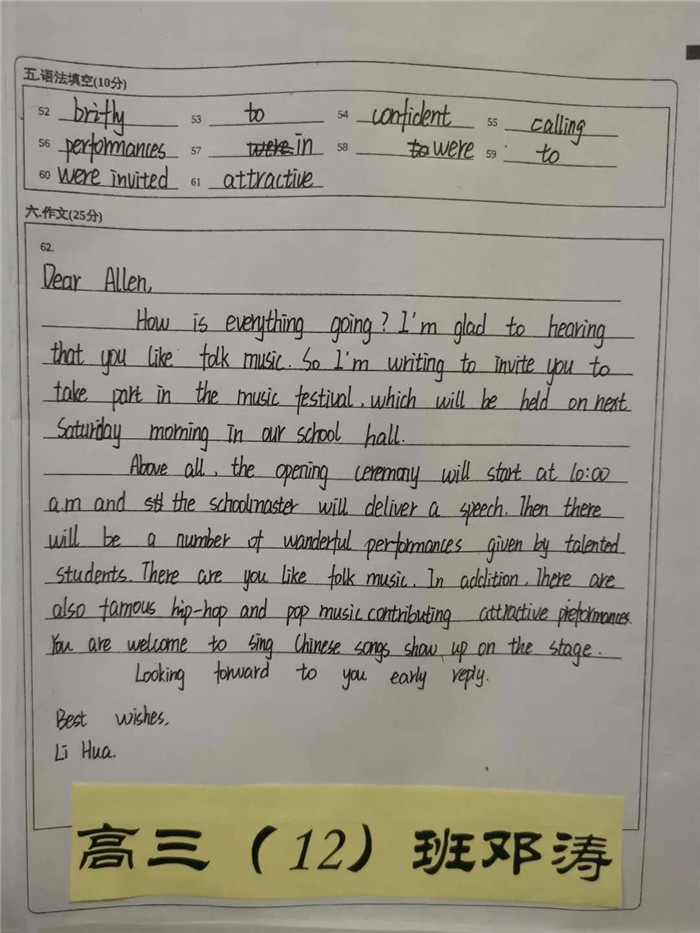 五.语法填空(10分)
52 brifly 53 to 54 confident 55 calling
56 performances 57 were in 58 to were 59 to
60 were invited 61 attractive
六.作文(25分)
62.
Dear Allen,
How is everything going? I'm glad to hearing
that you like folk music. So I'm writing to invite you to
take part in the music festival, which will be held on next
Saturday morning in our school hall.
Above all, the opening ceremony will start at 10:00
a.m and the schoolmaster will deliver a speech. Then there
will be a number of wanderful performances given by talented
students. There are you like folk music. In addition, There are
also famous hip-hop and pop music contributing attractive preformances.
You are welcome to sing Chinese songs show up on the stage.
Looking forward to you early reply.
Best wishes,
Li Hua.
高三（12）班邓涛